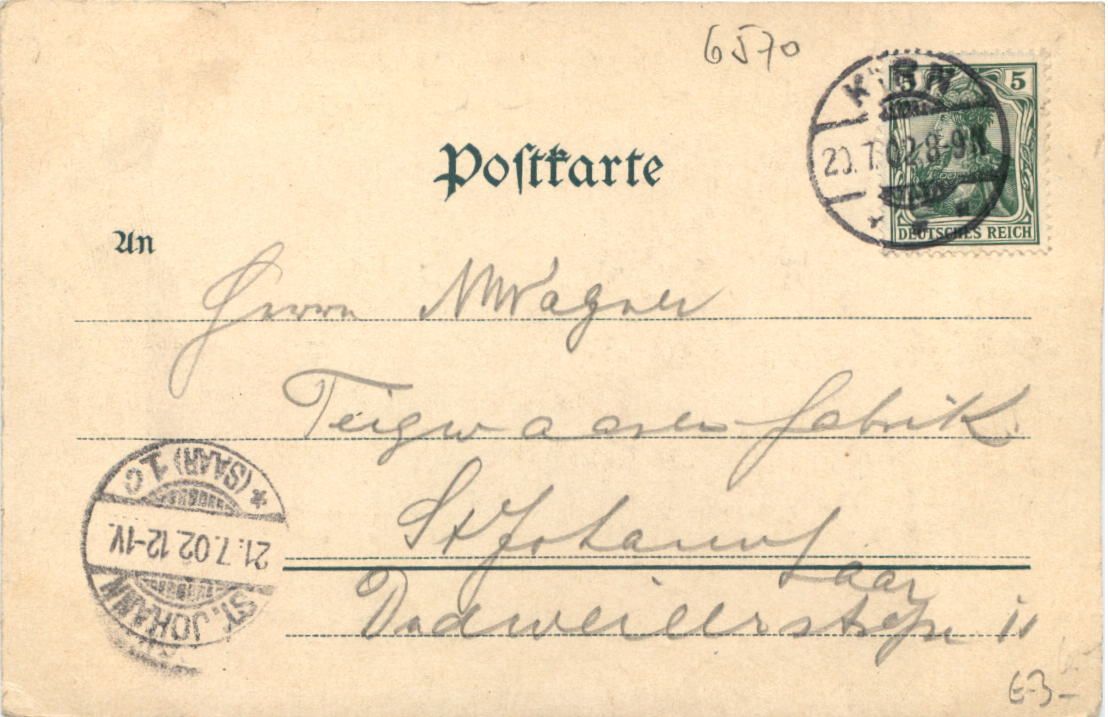 6570
KIRN
20.7.02.8-9N
5
DEUTSCHES REICH
Postkarte
An
Herrn Wagner
Teigwaaren fabrik
St Johann /
Saar
Dudweilerstraße
* (SAAR) 1 C
21.7.02.12-1V.
ST. JOHANN
6-3-